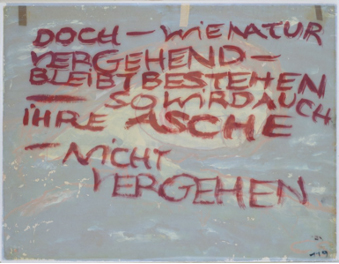 DOCH – WIE NATUR
VERGEHEND –
BLEIBT BESTEHEN
— SO WIRD AUCH
IHRE ASCHE
– NICHT
VERGEHEN